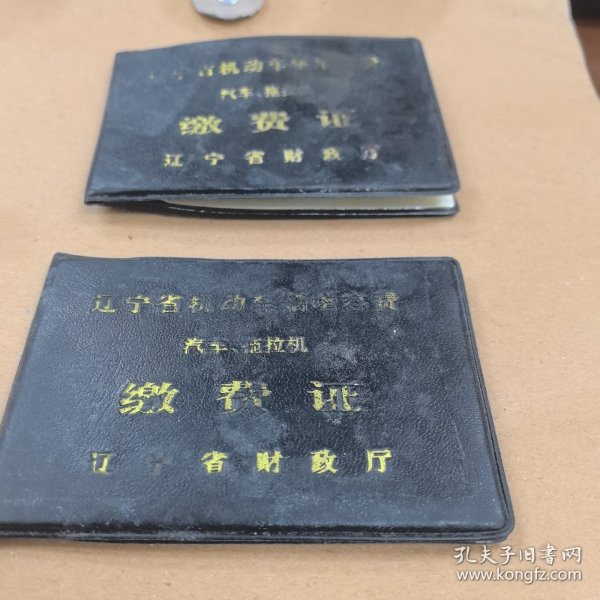 辽宁省机动车
汽车、拖
缴费证
辽宁省财政厅
辽宁省机动车
汽车、拖拉机
缴费证
辽宁省财政厅
孔夫子旧书网
www.kongfz.com